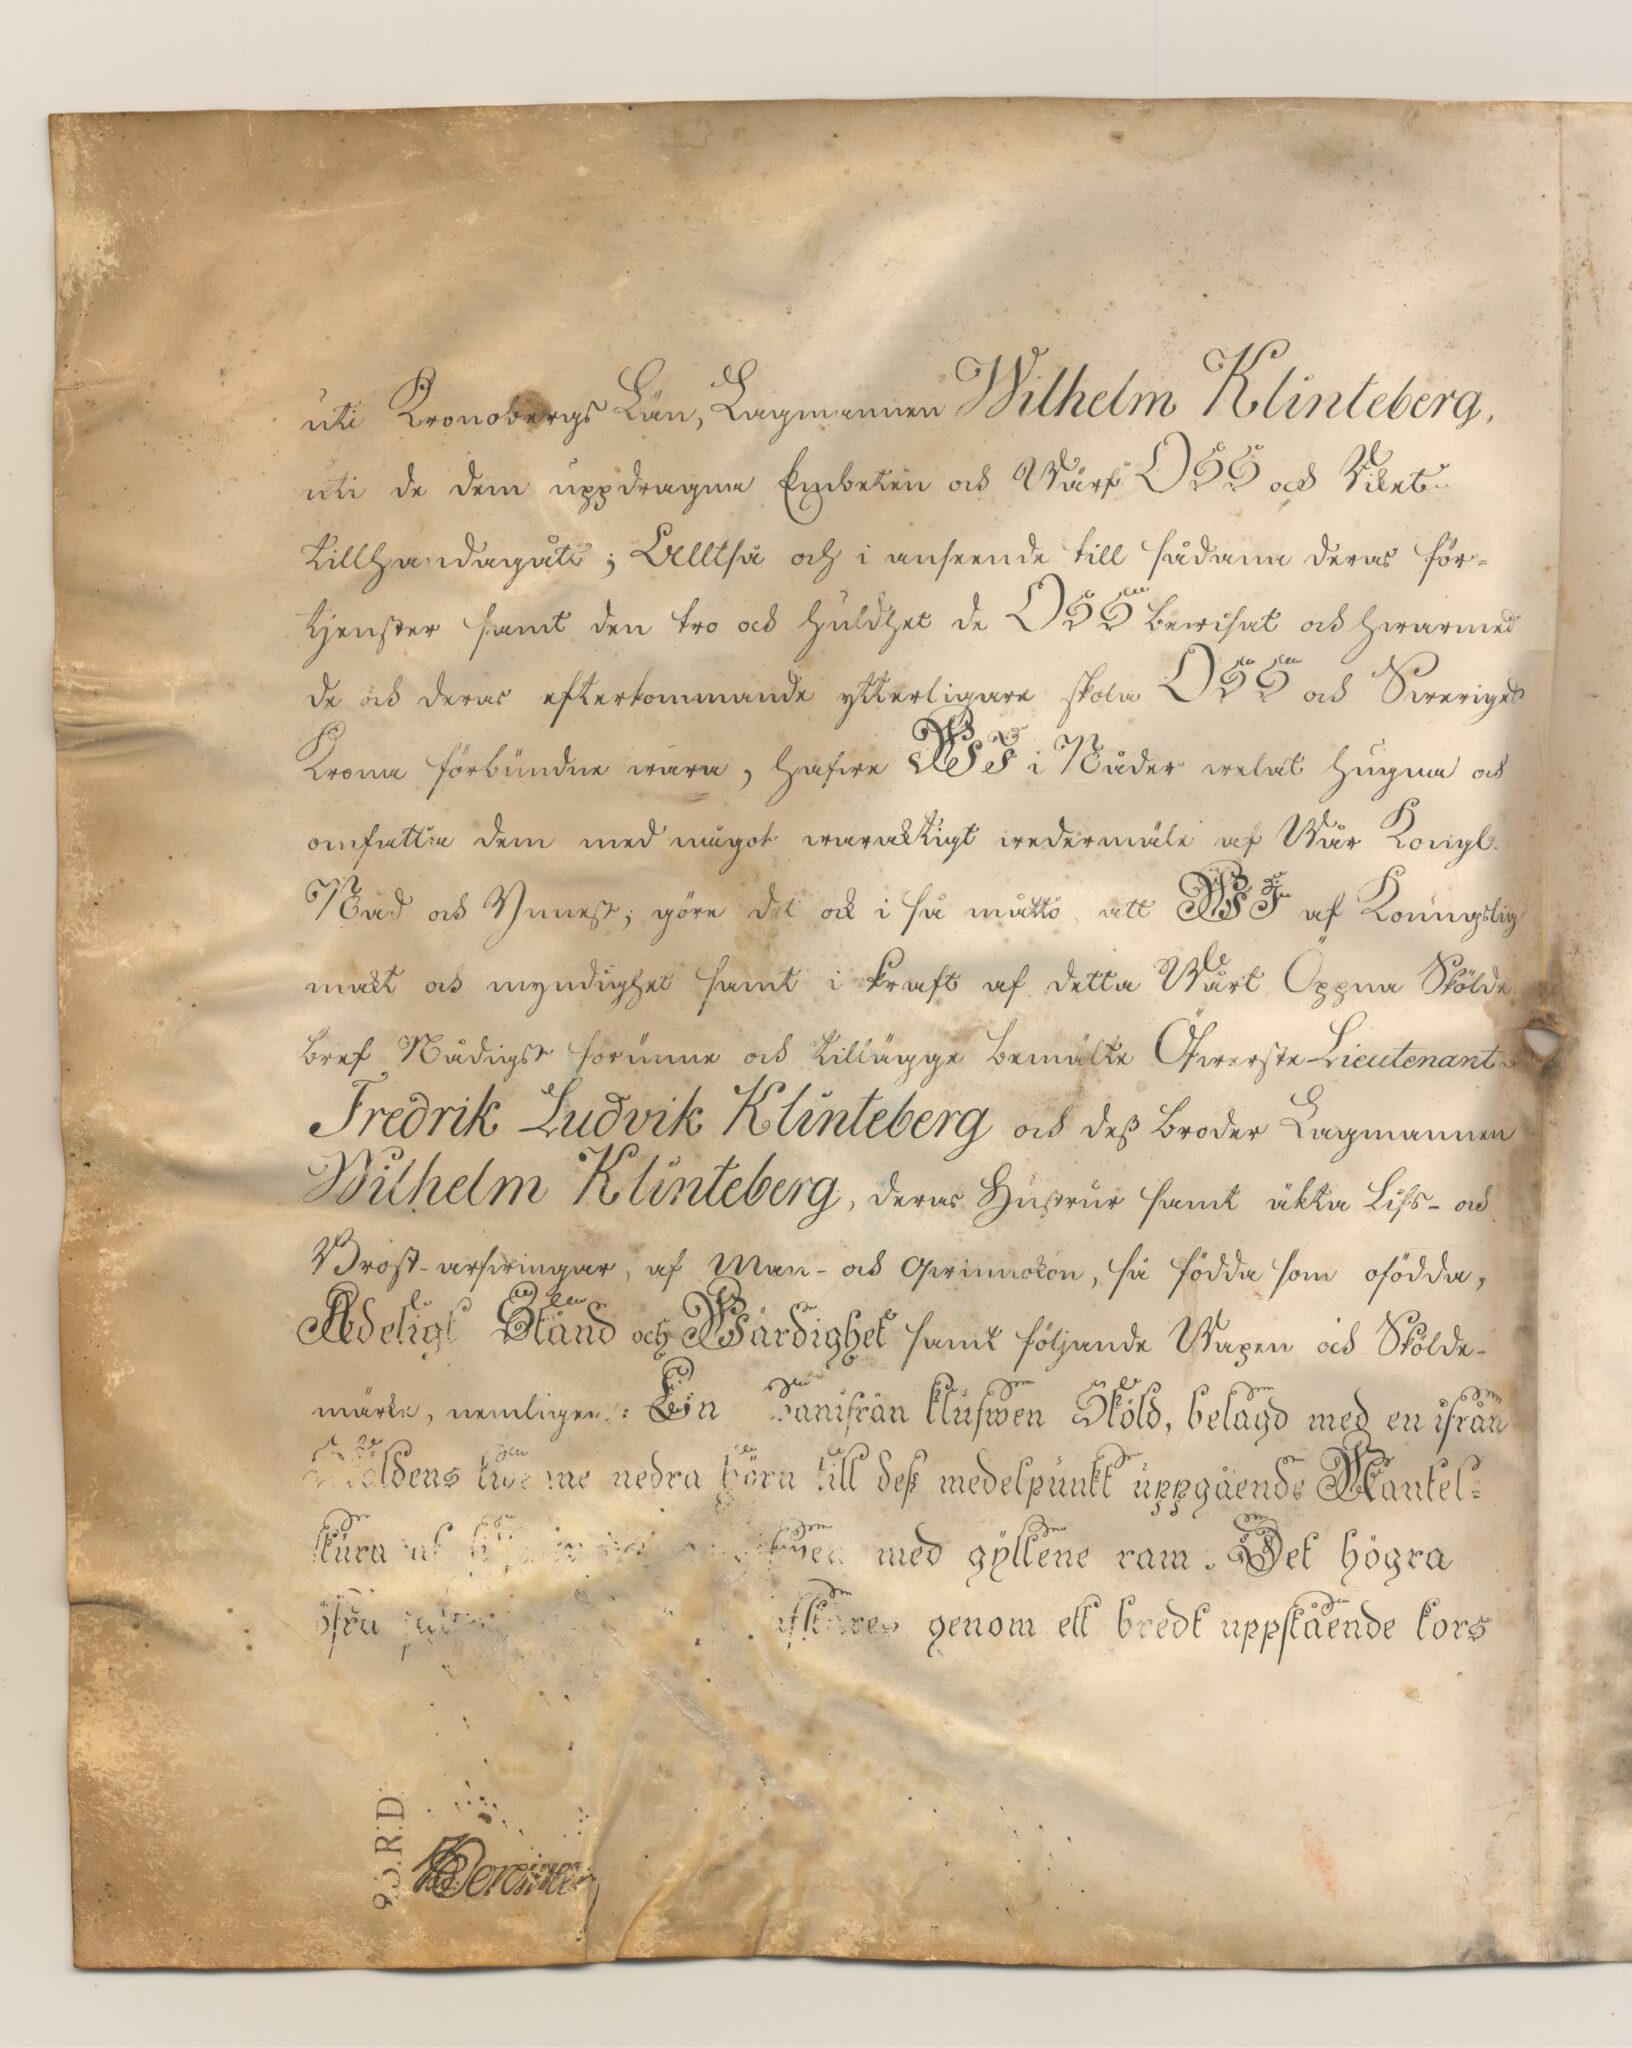 uti Kronobergs Län, Lagmannen Wilhelm Klinteberg,
uti de dem uppdragna Embeten och Wärf OSS och Riket
tillhandagått; Alltså och i anseende till sådana deras för-
tjenster samt den tro och huldhet de OSS bewisat och hwarmed
de och deras efterkommande ytterligare skola OSS och Sweriges
Krona förbundne wara, hafwe WJ i Nåder welat hugna och
omfatta dem med något waraktigt wedermäle af Wår Kongl.
Nåd och Ynnest; göre det ock i så måtto, att WJ af Konungslig
makt och myndighet samt i kraft af detta Wårt Öppna Skölde
bref Nådigst förunne och tillägge bemälte Öfwerste-Lieutenant
Fredrik Ludvik Klinteberg och deß broder Lagmannen
Wilhelm Klinteberg, deras Hustrur samt äkta Lifs- och
Bröst-arfwingar, af Man- och Qwinnokön, så födda som ofödda,
Adeligt Stånd och Wärdighet samt följande Wapen och Skölde-
märke, nemligen: En framifrån klufwen Sköld, belagd med en ifrån
Sköldens twenne nedra hörn till deß medelpunkt uppgående Mantel-
skura af med gyllene ram. Det högra
öfra afskäres genom ett bredt uppstående kors
93.R.D.